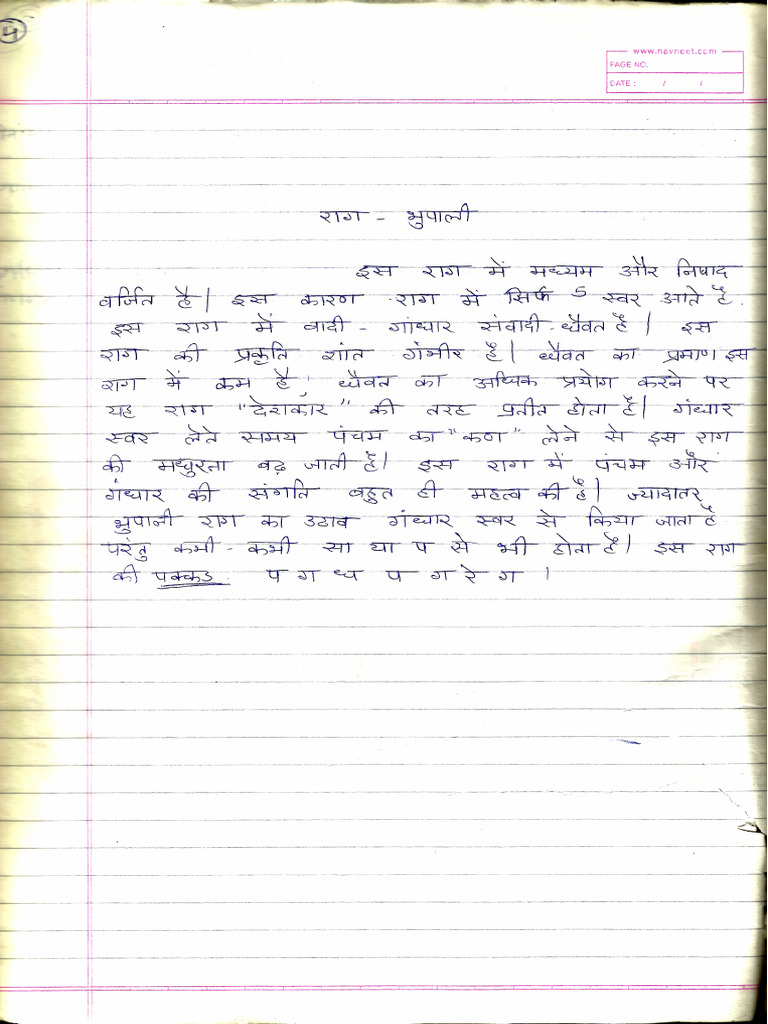 4
www.navneet.com
PAGE NO.
DATE : / /
राग - भुपाली
इस राग में मध्यम और निषाद
वर्जित है। इस कारण राग में सिर्फ 5 स्वर आते है.
इस राग में वादी - गांधार संवादी - धैवत है। इस
राग की प्रकृति शांत गंभीर है। धैवत का प्रमाण इस
राग में कम है, धैवत का अधिक प्रयोग करने पर
यह राग "देशकार" की तरह प्रतीत होता है। गंधार
स्वर लेते समय पंचम का "कण" लेने से इस राग
की मधुरता बढ़ जाती है। इस राग में पंचम और
गंधार की संगति बहुत ही महत्व की है। ज्यादातर
भुपाली राग का उठाव गंधार स्वर से किया जाता है
परंतु कभी - कभी सा या प से भी होता है। इस राग
की पक्कड प ग ध प ग रे ग ।